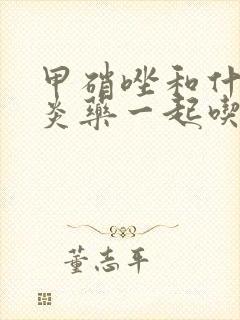 甲硝唑和什
炎药一起喫
董志平